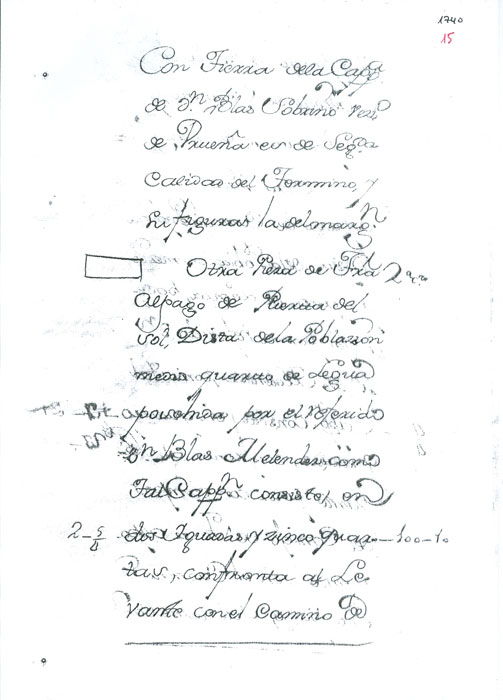 1740
15
Con Tierra de la Capp.n
de D.n Blas Sobrino vez.o
de Prueña es de Seg.da
Calidad del Termino, y
su figura es la del marg.n
Otra Pieza de Trra
Al pago de del
Sol, Dista de la Poblazion
medio quarto de Legua
aposehida por el referido
D.n Blas Melendez como
Tal Capp.n consiste, en
2-5/4 dos Yguadas y zinco quar-100-10
tas, confronta al Le
vante con el Camino de